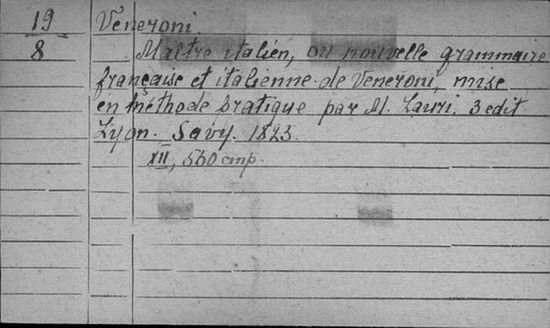 19
8
Veneroni
Maître italien, ou nouvelle grammaire
française et italienne de Veneroni, mise
en méthode pratique par M. Lauri. 3 edit
Lyon. Savy. 1823.
XII, 560 стр.